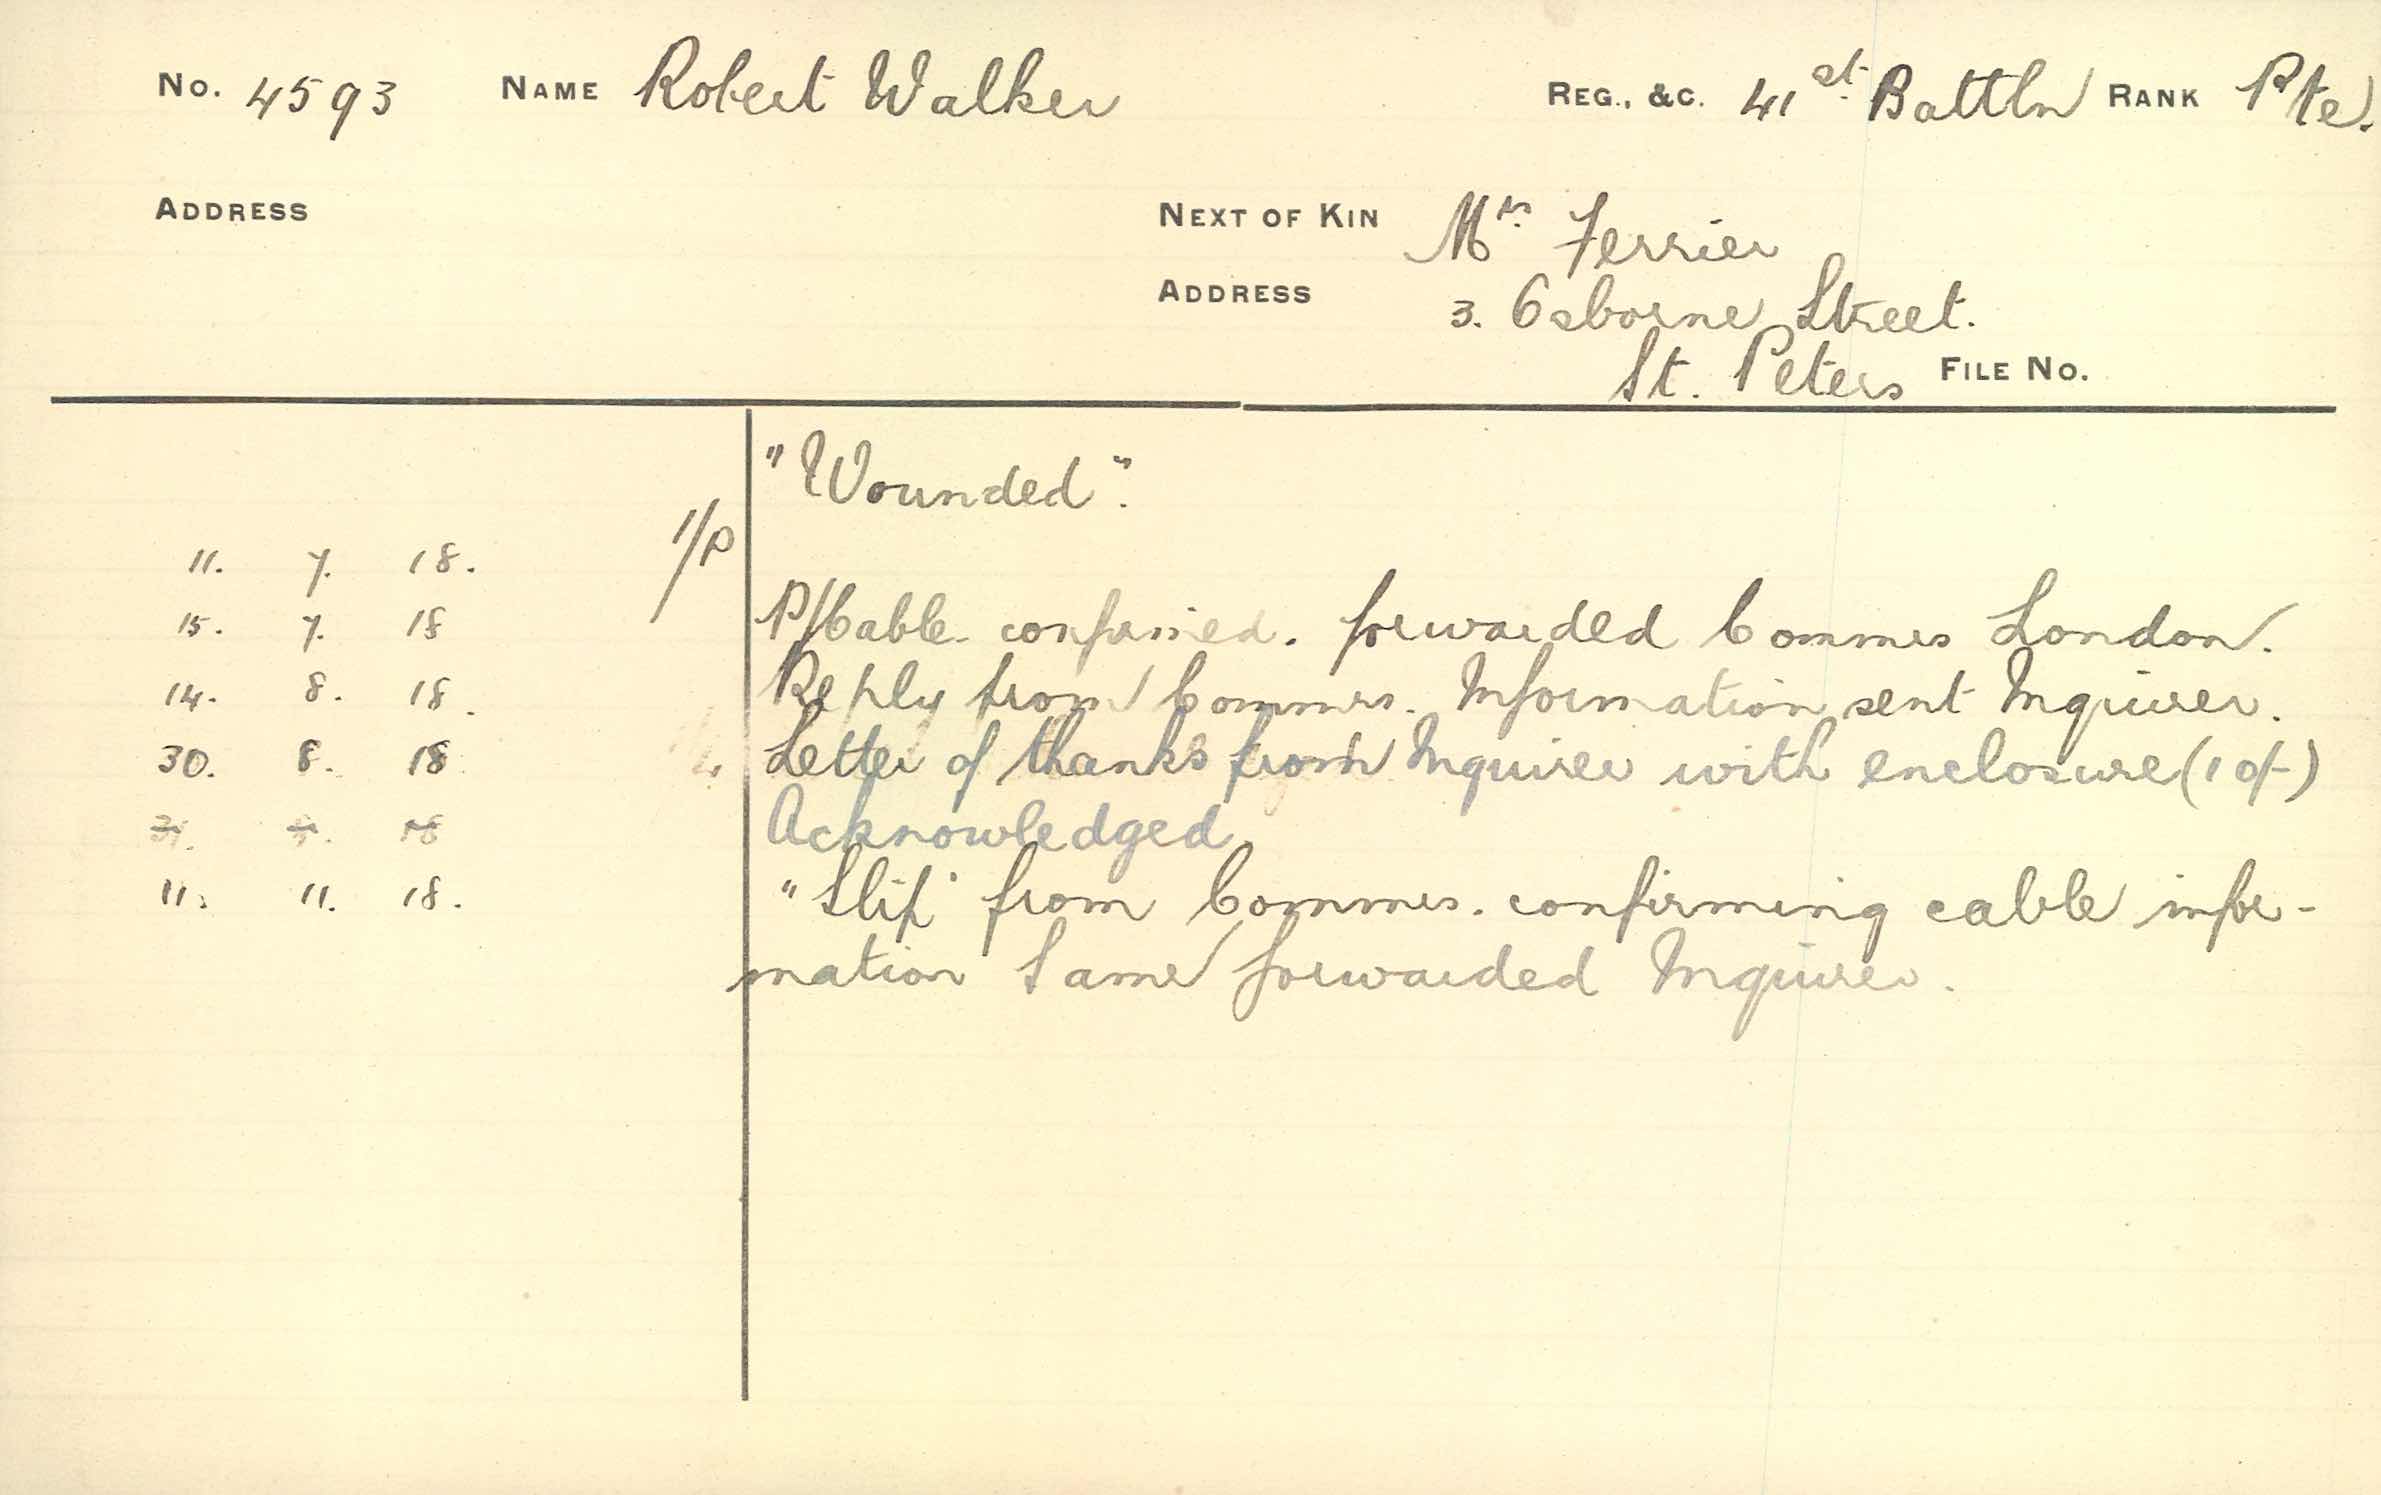 No. 4593 NAME Robert Walker REG., &C. 41st Battln RANK Pte.
ADDRESS NEXT OF KIN Mrs Ferrier
ADDRESS 3. Osborne Street.
St. Peters FILE No.
"Wounded".
11. 7. 18.
15. 7. 18 P/Cable. confirmed. forwarded Commrs London.
14. 8. 18. Reply from Commrs. Information sent Inquirer.
30. 8. 18 Letter of thanks from Inquirer with enclosure (10/-)
Acknowledged.
11. 11. 18. "Slip" from Commrs. confirming cable infor-
mation Same forwarded Inquirer.